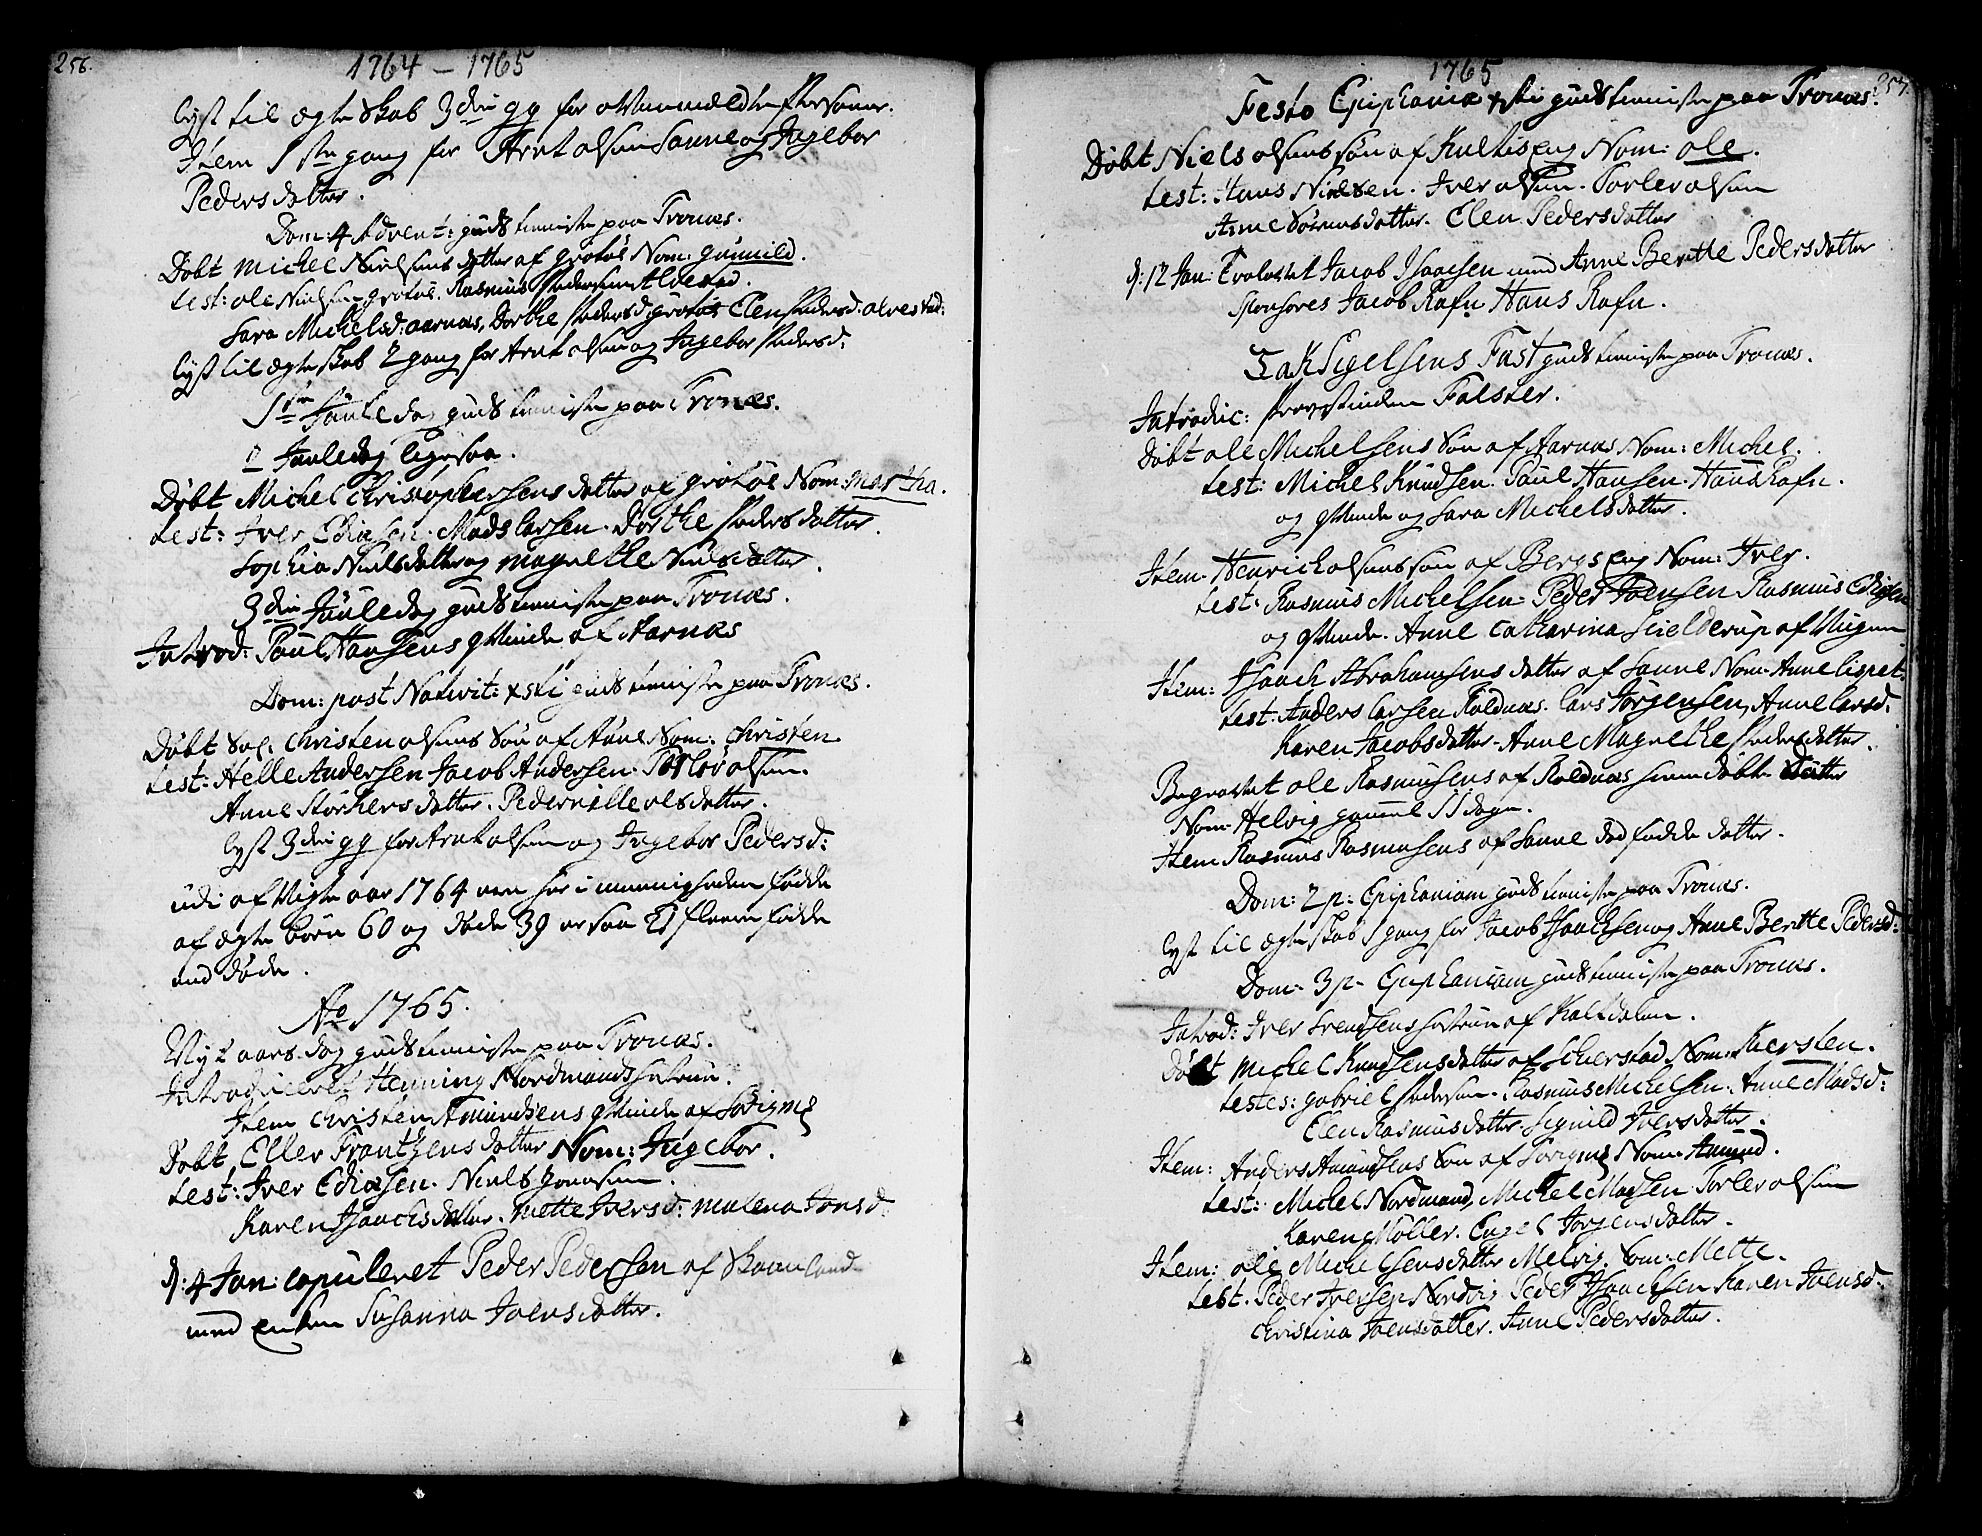 256.
1764 - 1765
lyst til ægteskab 3die gg for personer.
Item 1ste gang for Arnt olsen Sanne og Ingebor
Pedersdatter.
Dom: 4 Advent: gudstieniste paa Tronæs.
Döbt Michel Nielsens datter af grotös Nom: gunnild.
test: ole Nielsen grotös. Rasmus Pedersen Alvestad.
Sara Michelsd: aarnæs, Dorthe Pedersd grotös Elen Pedersd: alvestad:
lyst til ægteskab 2 gang for Arnt olsen og Ingebor Pedersd:
1ste Juuledag gudstieniste paa Tronæs.
2 Juuledag ligesaa.
Döbt Michel Christophersens datter af grotös Nom: Martha.
test: Iver Ediasen. Mads larsen. Dorthe Pedersdatter.
Sophia Nielsdatter og Magrethe Nielsdatter.
3die Juuledag gudstieniste paa Tronæs.
Introd: Paul Hansens qvinde af Aarnæs
Dom: post Nativit: xsti gudstieniste paa Tronæs.
Döbt Sal. Christen olsens Sön af Aune Nom: Christen.
test: Helle Andersen Jacob Andersen. Torlev olsen.
Anne Störkersdatter. Pedernille olsdatter.
lyst 3die gg for Arnt olsen og Ingebor Pedersd:
udi afvigte aar 1764 ere her i menigheden födde
af ægte börn 60 og döde 39 er saa 21 fleere födde
end döde.
Ao 1765.
Nyt aars dag gudstieniste paa Tronæs.
Introduceret Henning Nordmands hustrue.
Item Christen Amundsens qvinde af
Döbt Eller Franthens datter Nom: Ingebor.
test: Iver Ediasen. Niels Jonasen.
Karen Isaachsdatter. Mette Iversd: Malena Jonsd:
d: 4 Jan: copuleret Peder Pedersen af Skaanland
med enken Susanna Joensdatter.
1765
257.
Festo Epiphaniæ xsti gudstieniste paa Tronæs.
Döbt Niels olsens sön af Nom: ole.
test: Hans Nielsen. Iver olsen. Torlev olsen
Anne Sörensdatter. Elen Pedersdatter
d: 12 Jan: Trolovet Jacob Isaachsen med Anne Berthe Pedersdatter
sponsores Jacob Rafn Hans Rafn.
Tak Sigelsens Fast gudstieniste paa Tronæs.
Introduc: Provstinden Falster.
Döbt ole Michelsens Sön af Aarnæs Nom: Michel.
test: Michel Knudsen. Paul Hansen. Hans Rafn.
og qvinde og Sara Michelsdatter.
Item Henrich olsens sön af Bergseng Nom: Iver.
test. Rasmus Michelsen. Peder Joensen Rasmus Ediasen
og qvinde. Anne Catharina Hielderup af
Item: Isaach Abrahamsens datter af Sanne Nom. Anne lispet.
test. Anders larsen Roldnæs. lars Jörgensen, Anne larsd.
Karen Jacobsdatter. Anne Magrethe Pedersdatter.
Begravet ole Rasmusens af Roldnæs hiemdöbte datter
Nom. Helvig gammel 11 dage.
Item Rasmus Rasmusens af Sanne död födde datter.
Dom: 2 p: Epiphaniam gudstieniste paa Tronæs.
lyst til ægteskab 1 gang for Jacob Isaachsen og Anne Berthe Pedersd:
Dom. 3 p. Epiphaniam gudstieniste paa Tronæs.
Introd: Iver Svendsens hustrue af Kaltdalen.
Döbt Michel Knudsens datter af Nom. Kiersten.
testes: gabriel Pedersen. Rasmus Michelsen. Anne Madsd:
Elen Rasmusdatter. Signild Iversdatter.
Item: Anders Amundsens Sön af Nom. Amund.
test: Michel Nordmand, Michel Madsen Torlev olsen
Karen Möller. Engel Jörgensdatter.
Item: ole Michelsens datter Melvig. Nom: Mette.
test. Peder Iversen Nordvig Peder Isaachsen Karen Joensd.
Christina Joensdatter. Anne Pedersdatter.